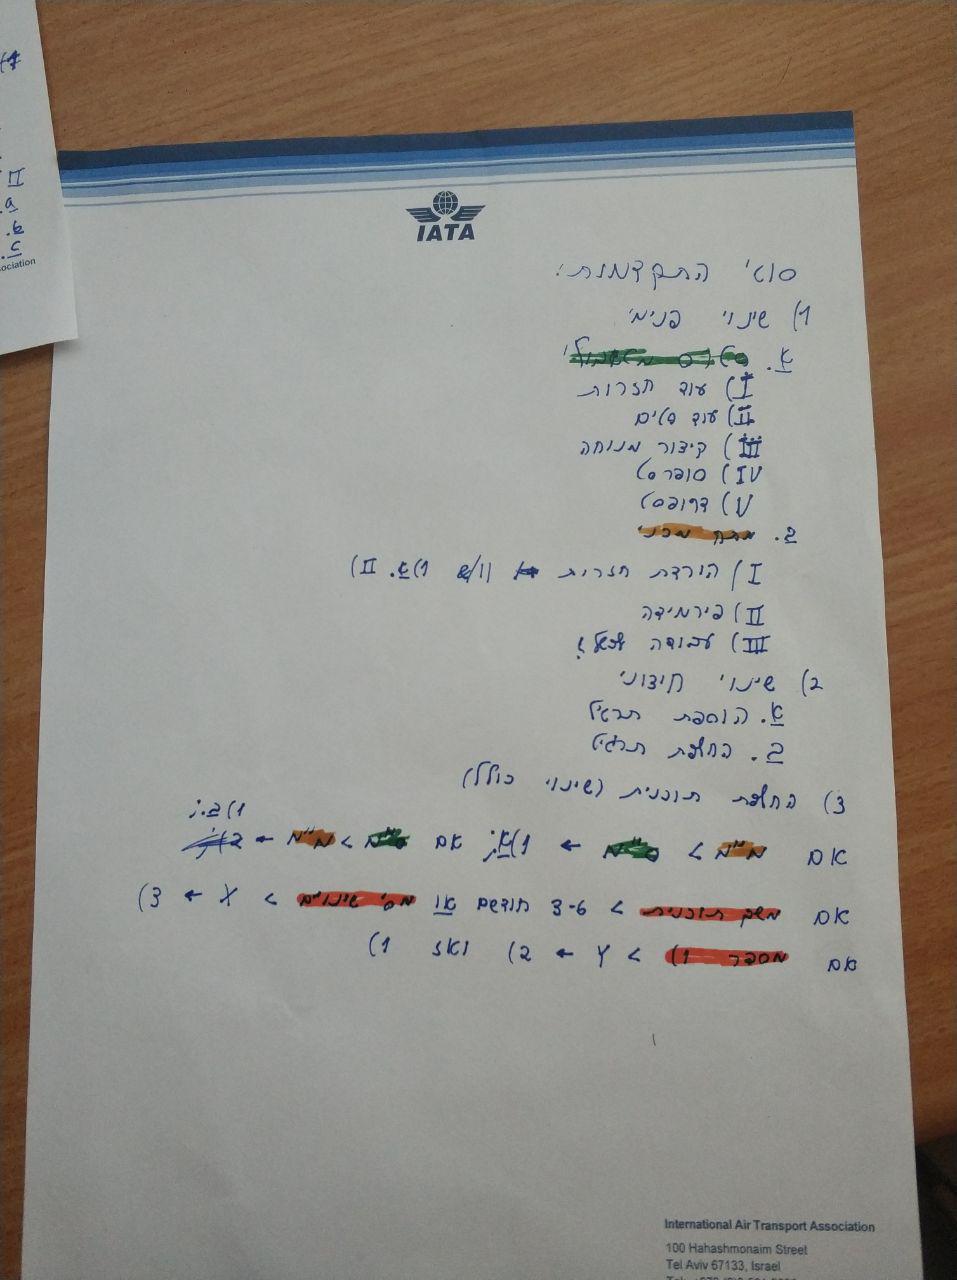 IATA
סוגי התקדמות:
1) שינוי פנימי
א. סטרס מטאבולי
I) עוד חזרות
II) עוד סטים
III) קיצור מנוחה
IV) סופרסט
V) דרופסט
ב. מתח מכני
I) הורדת חזרות ו/או 1)א. II)
II) פירמידה
III) עבודה
2) שינוי חיצוני
א. הוספת תרגיל
ב. החלפת תרגיל
3) החלפת תוכנית (שינוי כולל)
1)ב.i
אם מ"מ > ס"מ ← 1)א.i אם ס"מ > מ"מ ←
אם משך תוכנית > 3-6 חודשים או מס' שינויים > X ← 3)
אם מספר 1) > Y ← 2) ואז 1)
International Air Transport Association
100 Hahashmonaim Street
Tel Aviv 67133, Israel
II
a.
b.
c.
ociation